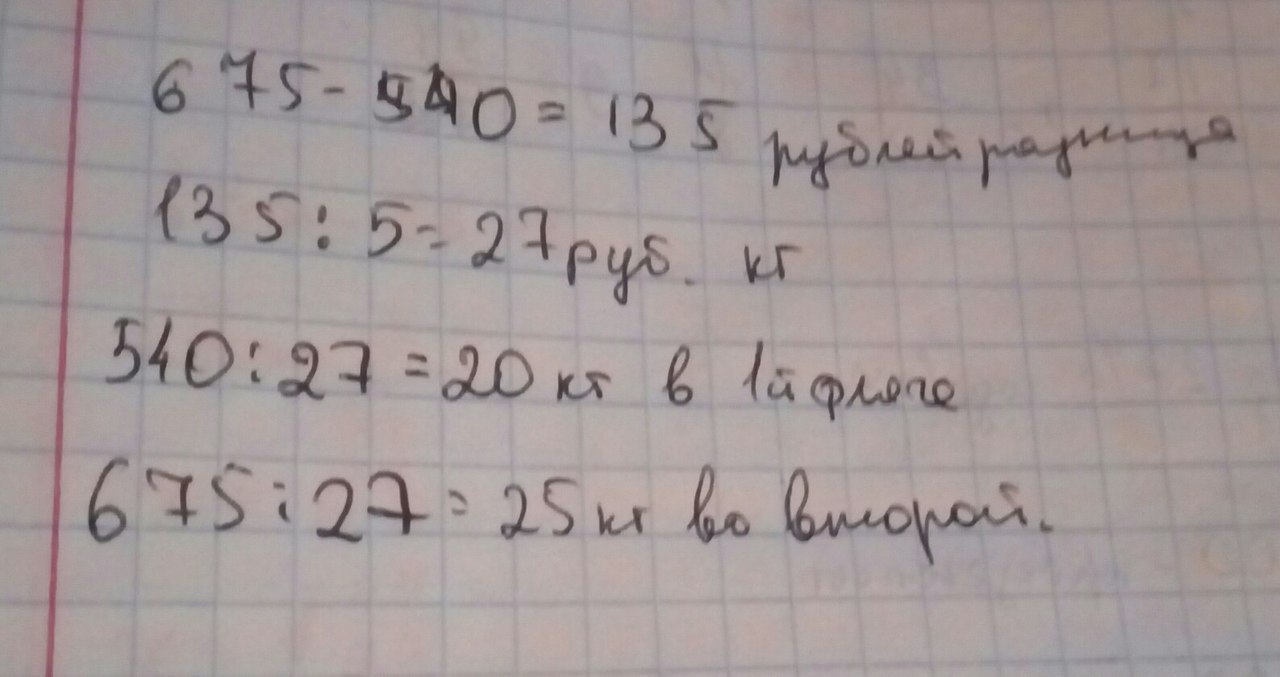 675-540=135 рублей разница
135:5=27руб. кг
540:27=20кг в 1й фляге
675:27=25кг во второй.